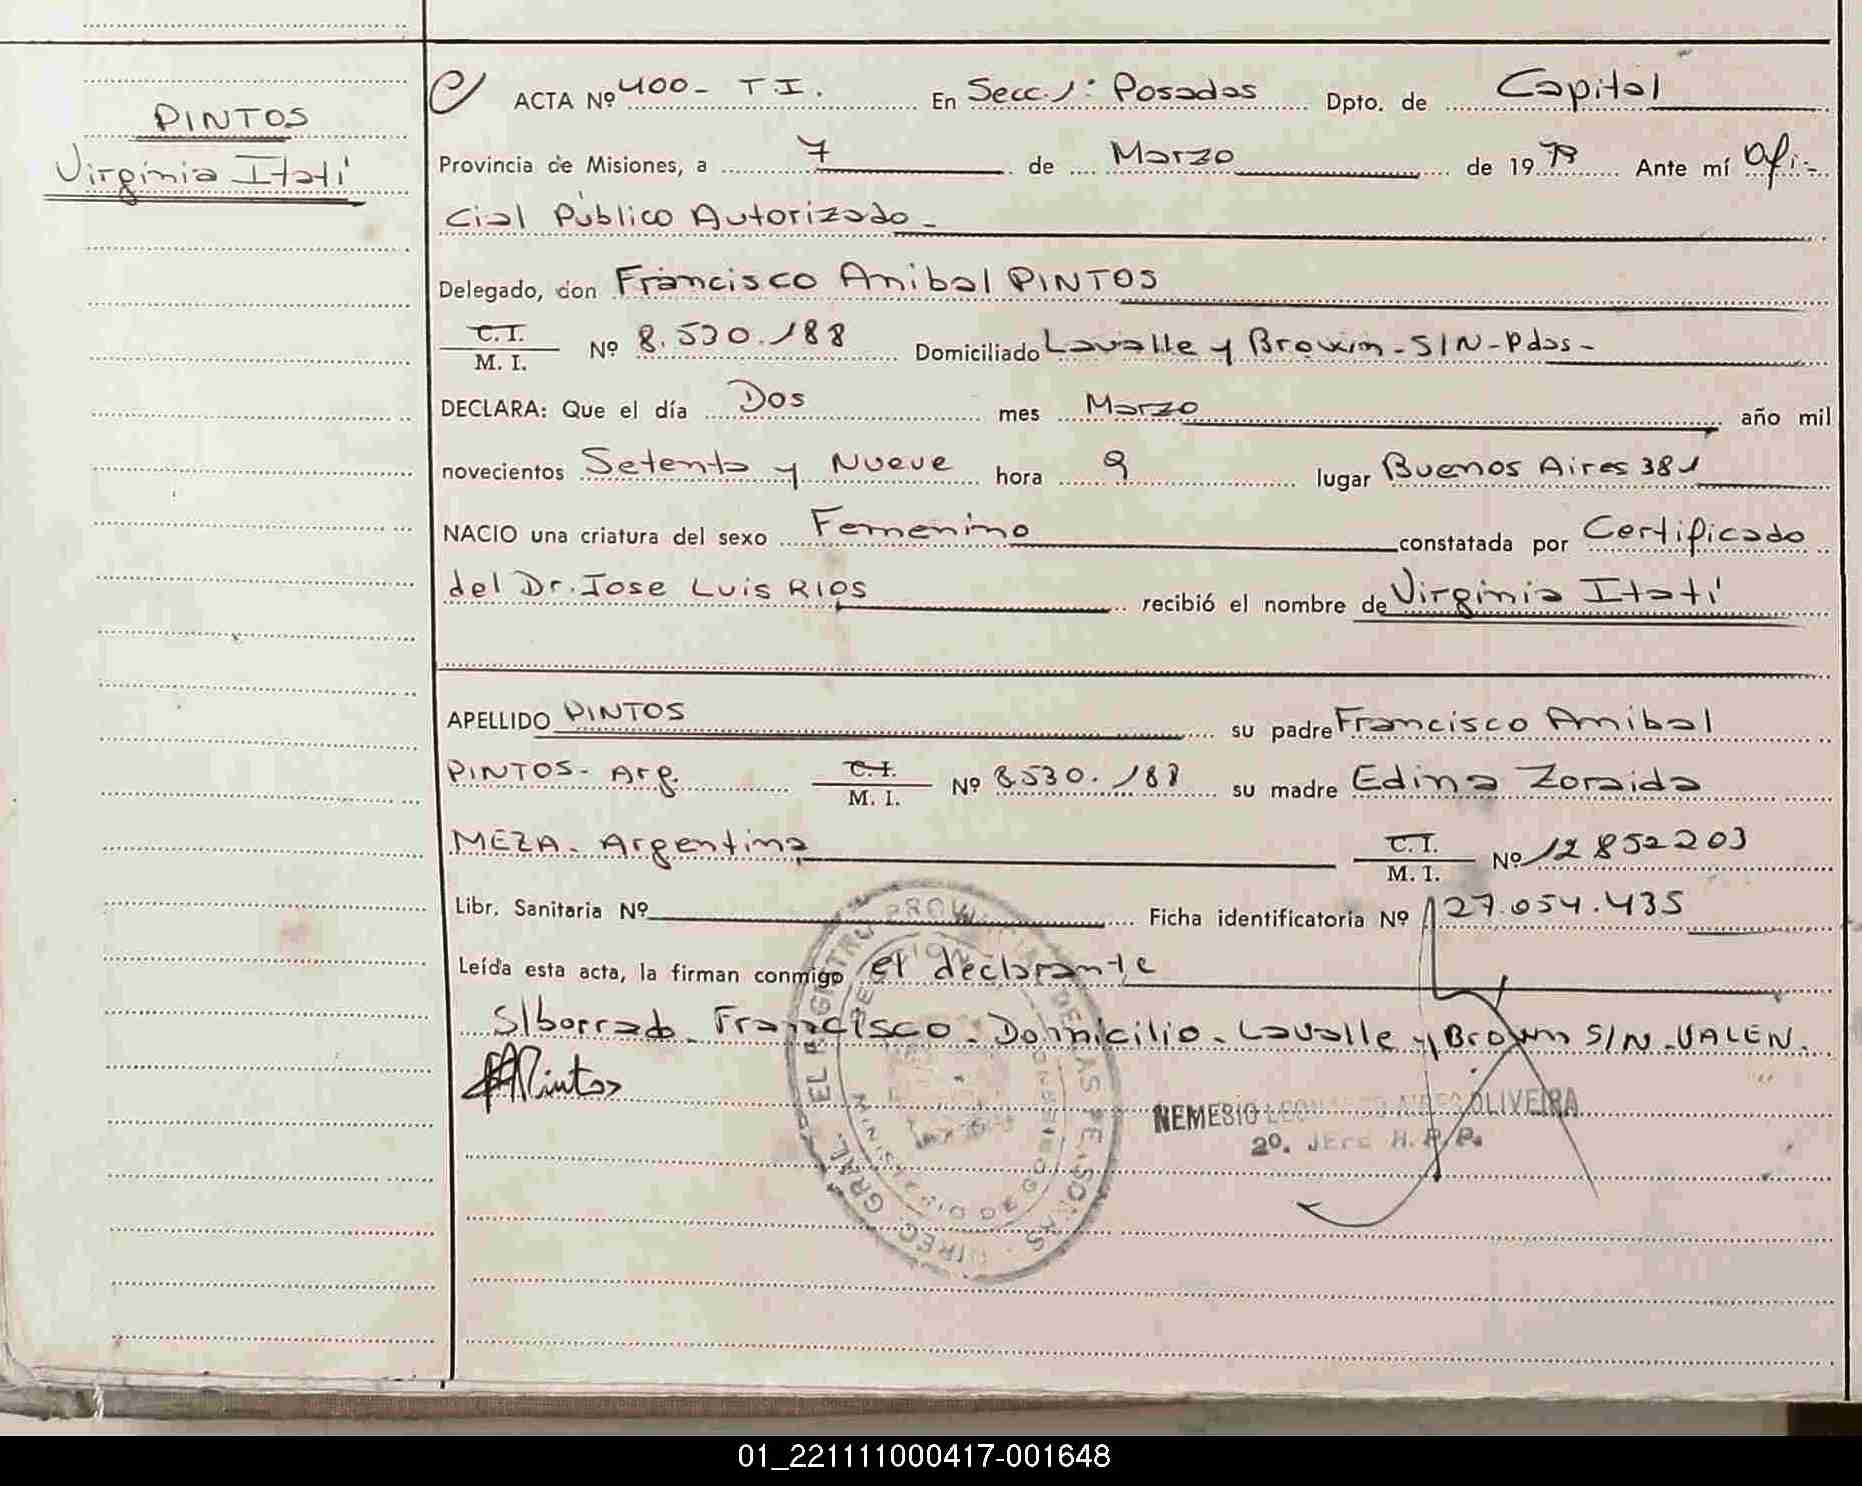 PINTOS
Virginia Itatí
ACTA Nº 400- T I. En Secc. 1: Posadas Dpto. de Capital
Provincia de Misiones, a 7 de Marzo de 1979 Ante mí Ofi-
cial Público Autorizado-
Delegado, don Francisco Anibal PINTOS
C.I.
M. I. Nº 8.530.188 Domiciliado Lavalle y Brown-S/N-Pdas-
DECLARA: Que el día Dos mes Marzo año mil
novecientos Setenta y Nueve hora 9 lugar Buenos Aires 381
NACIO una criatura del sexo Femenino constatada por Certificado
del Dr. Jose Luis RIOS recibió el nombre de Virginia Itatí
APELLIDO PINTOS su padre Francisco Anibal
PINTOS- Arg. C.I.
M. I. Nº 8.530.188 su madre Edina Zoraida
MEZA- Argentina C.I.
M. I. Nº 12 852203
Libr. Sanitaria Nº Ficha identificatoria Nº 27.054.435
Leída esta acta, la firman conmigo el declarante
S/borrado- Francisco- Domicilio- Lavalle y Brown S/N-VALEN.
Pintos
NEMESIO OLIVEIRA
2º. JEFE R. P. P.
DIREC. GRAL. EL REGISTRO PROVINCIAL DE LAS PERSONAS
01_221111000417-001648